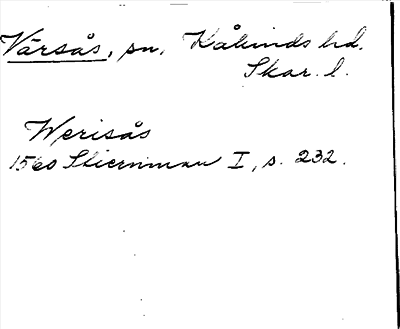 Värsås, sn, Kåkinds hd.
Skar. l.
Werisås
1560 Stiernman I, s. 232.